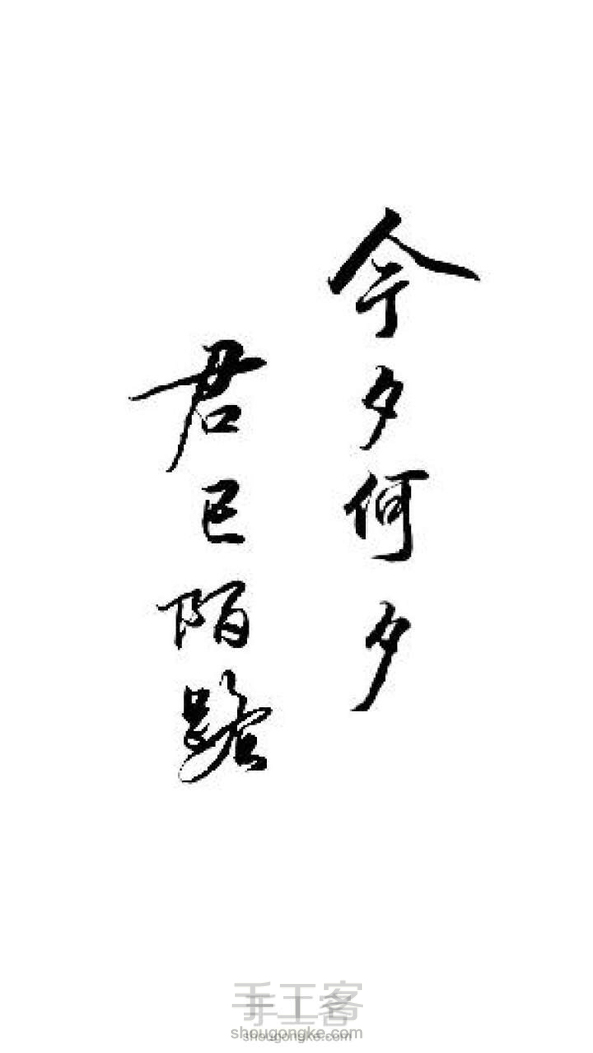 今夕何夕
君已陌路
手工客
shougongke.com